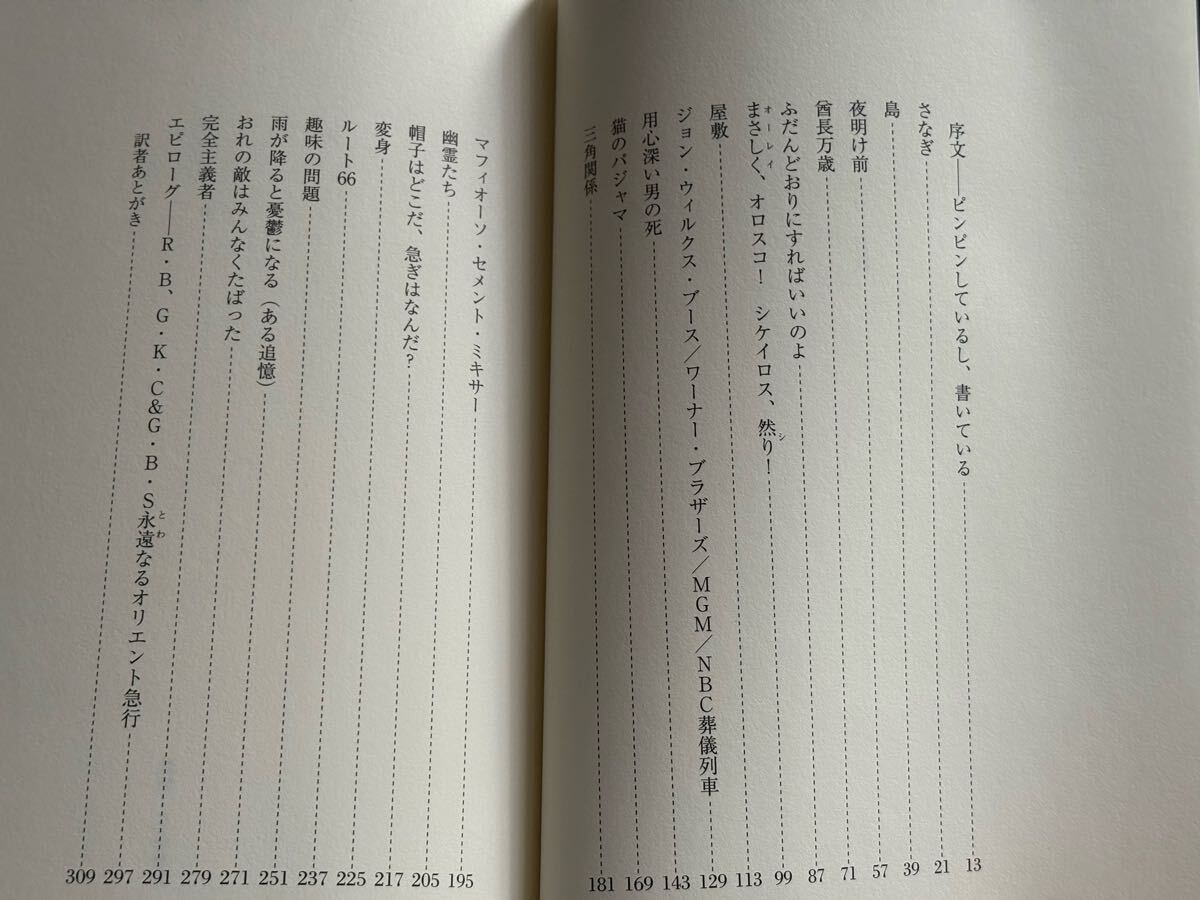 序文――ピンピンしているし、書いている 13
さなぎ 21
島 39
夜明け前 57
酋長万歳 71
ふだんどおりにすればいいのよ 87
オーレイ シ
まさしく、オロスコ！ シケイロス、然り！ 99
屋敷 113
ジョン・ウィルクス・ブース／ワーナー・ブラザーズ／MGM／NBC葬儀列車 129
用心深い男の死 143
猫のパジャマ 169
三角関係 181
マフィオーソ・セメント・ミキサー 195
幽霊たち 205
帽子はどこだ、急ぎはなんだ？ 217
変身 225
ルート66 237
趣味の問題 251
雨が降ると憂鬱になる（ある追憶） 271
おれの敵はみんなくたばった 279
完全主義者 291
とわ
エピローグ――R・B、G・K・C&G・B・S永遠なるオリエント急行 297
訳者あとがき 309